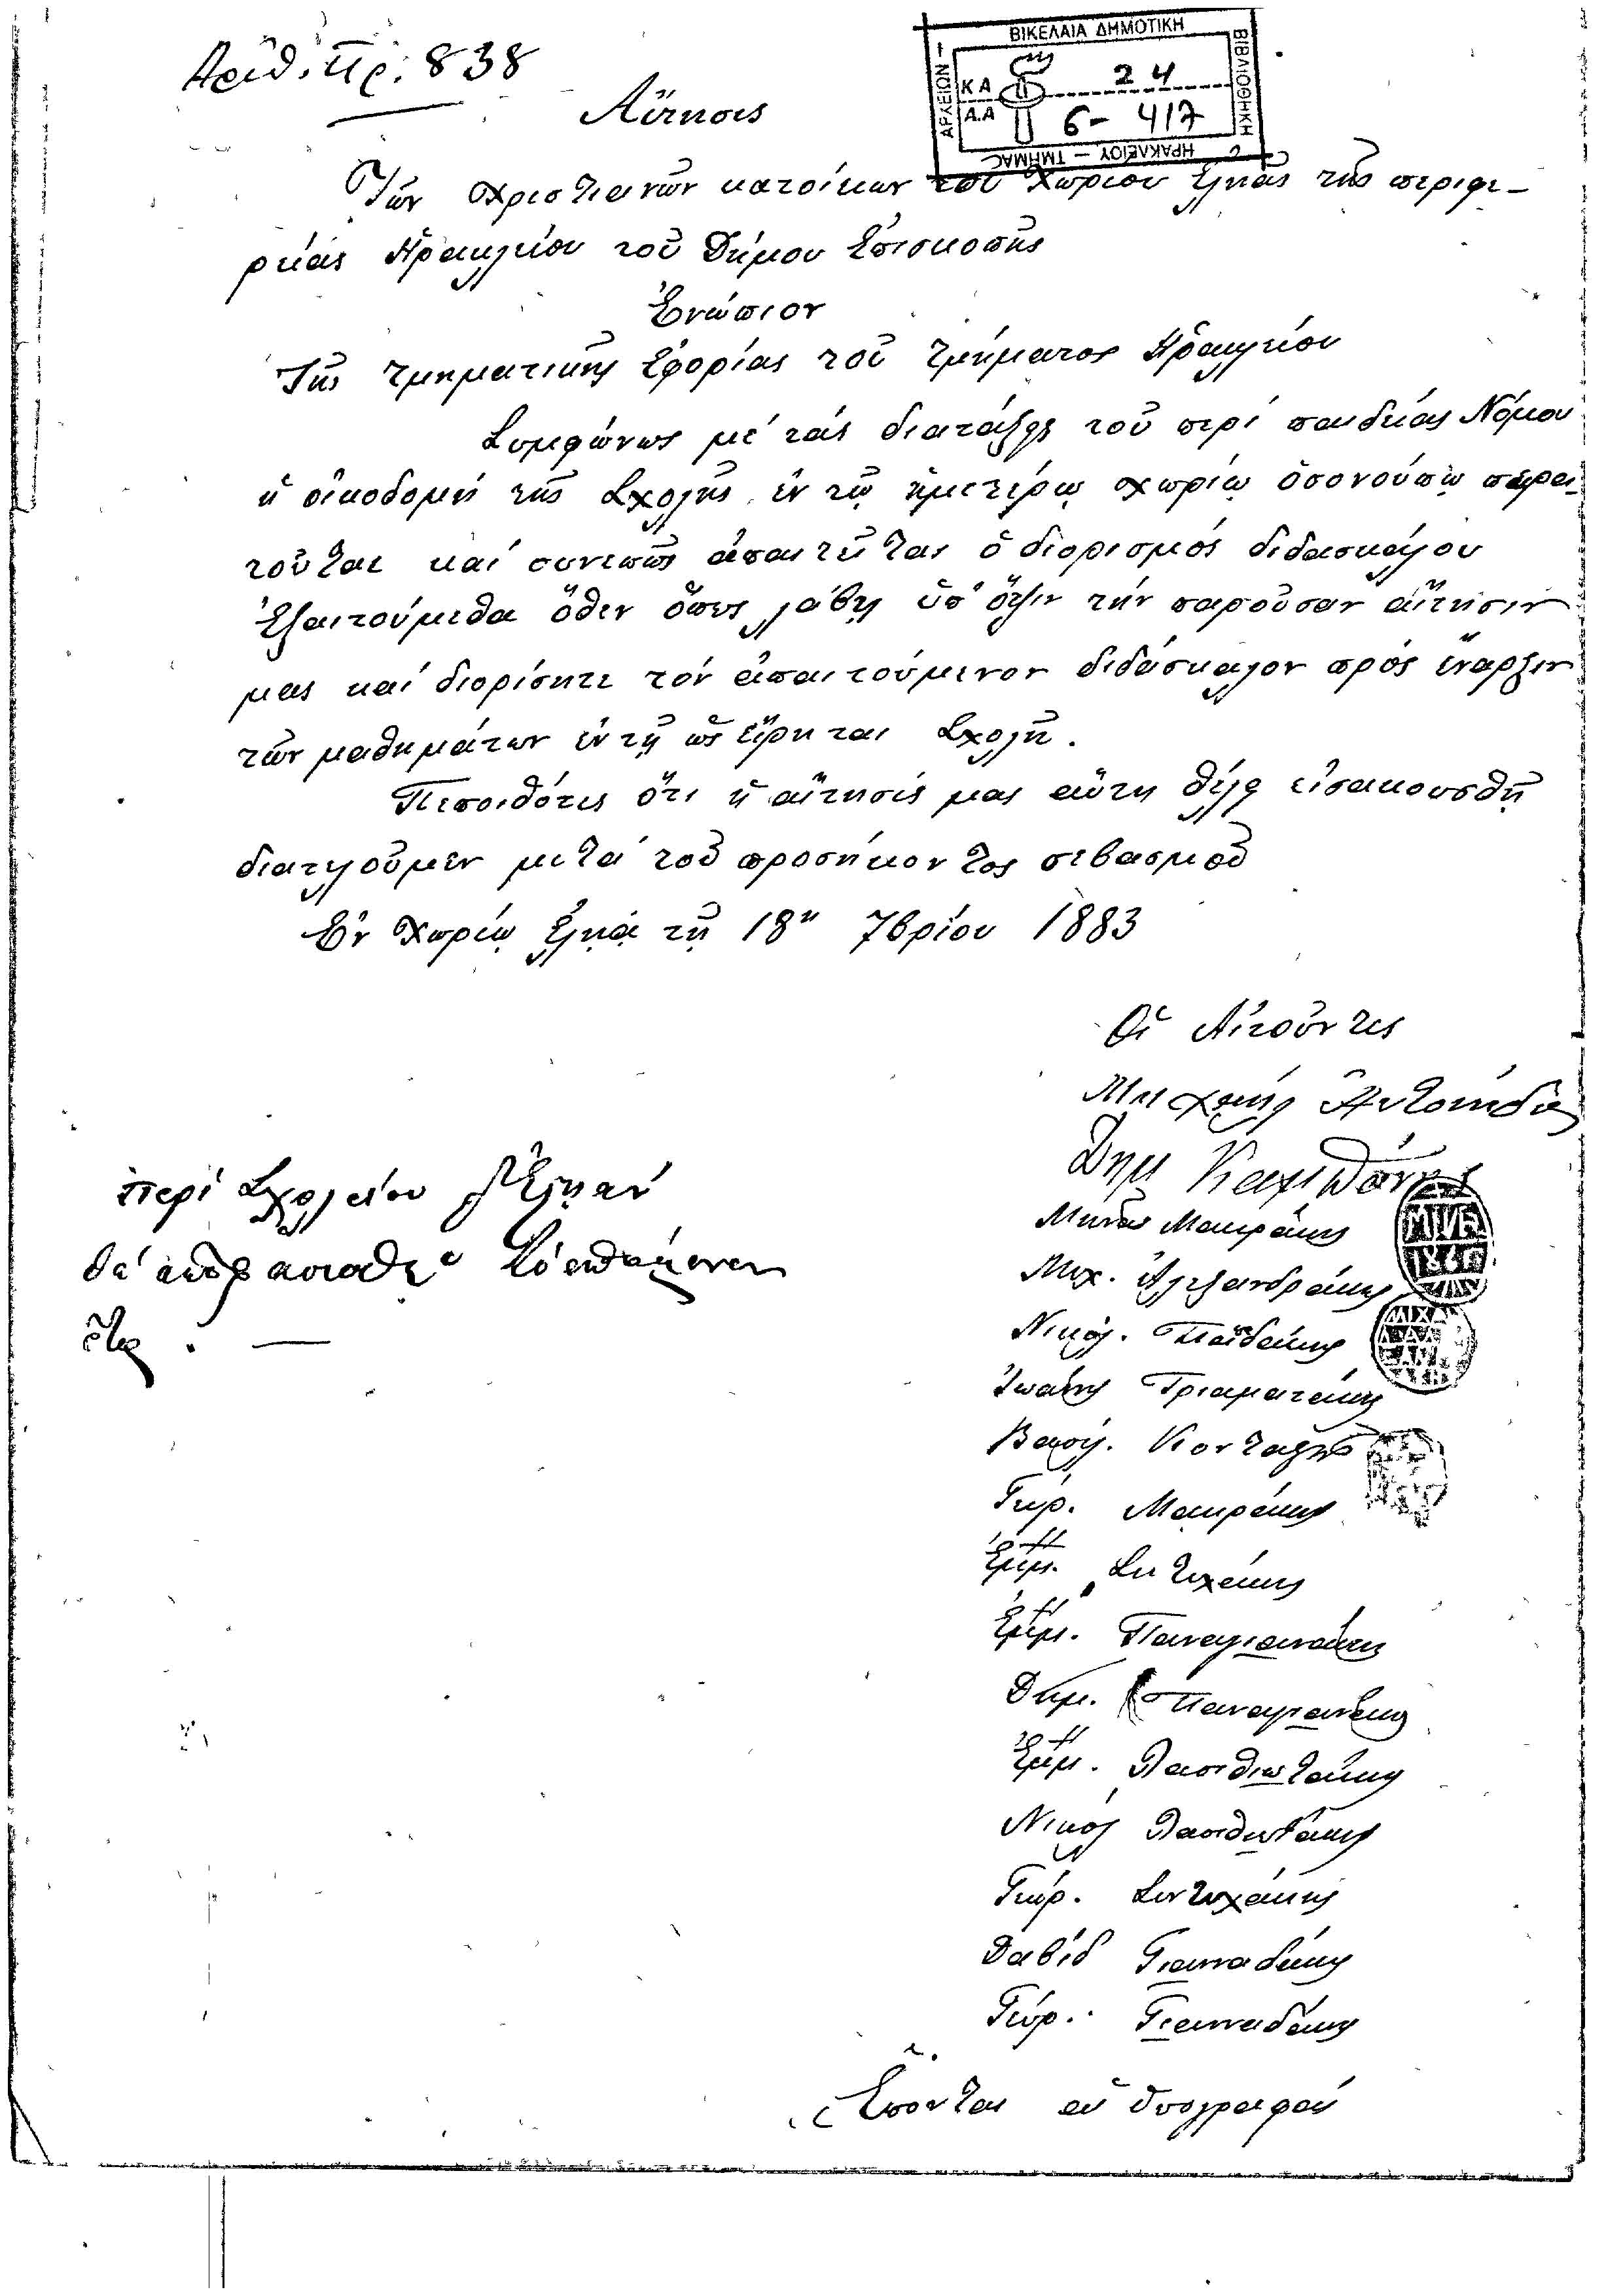 Ἀριθ. Πρ. 838
ΒΙΚΕΛΑΙΑ ΔΗΜΟΤΙΚΗ
ΒΙΒΛΙΟΘΗΚΗ
ΗΡΑΚΛΕΙΟΥ — ΤΜΗΜΑ
ΑΡΧΕΙΩΝ —
Κ Α 24
Α.Α 6- 417
Αἴτησις
Τῶν χριστιανῶν κατοίκων τοῦ Χωρίου Ἐληᾶς τῆς περιφε-
ρείας Ἡρακλείου τοῦ Δήμου Ἐπισκοπῆς
Ἐνώπιον
Τῆς τμηματικῆς Ἐφορίας τοῦ τμήματος Ἡρακλείου
Συμφώνως μὲ τὰς διατάξεις τοῦ περὶ παιδείας Νόμου
ἡ οἰκοδομὴ τῆς Σχολῆς ἐν τῷ ἡμετέρῳ χωρίῳ ὁσονούπω περαι-
τοῦται καὶ συνεπῶς ἀπαιτεῖται ὁ διορισμὸς διδασκάλου
Ἐξαιτούμεθα ὅθεν ὅπως λάβῃ ὑπ' ὄψιν τὴν παροῦσαν αἴτησιν
μας καὶ διορίσητε τὸν ἀπαιτούμενον διδάσκαλον πρὸς ἔναρξιν
τῶν μαθημάτων ἐν τῇ ὡς εἴρηται Σχολῇ.
Πεποιθότες ὅτι ἡ αἴτησίς μας αὕτη θέλει εἰσακουσθῇ
διατελοῦμεν μετὰ τοῦ προσήκοντος σεβασμοῦ
Ἐν Χωρίῳ Ἐληᾷ τῇ 18ῃ 7βρίου 1883
Οἱ Αἰτοῦντες
Μιχαήλ
Δημ
Μηνᾶς Μακράκης
Μιχ. Ἀλεξανδράκης
Νικόλ. Παϊδάκης
Ἰωάννης Γριαματάκης
Βασίλ.
Γεώρ. Μακράκης
Ἐμμ. Συντυχάκης
Ἐμμ. Παναγιαννάκης
Δημ. Παναγιαννάκης
Ἐμμ. Λασιθιωτάκης
Νικόλ Λασιθιωτάκης
Γεώρ. Συντυχάκης
Δαβίδ Γιανναδάκης
Γεώρ. Γιανναδάκης
Ἕπονται αἱ ὑπογραφαί
περὶ Σχολείου Ἐληᾶν
θὰ